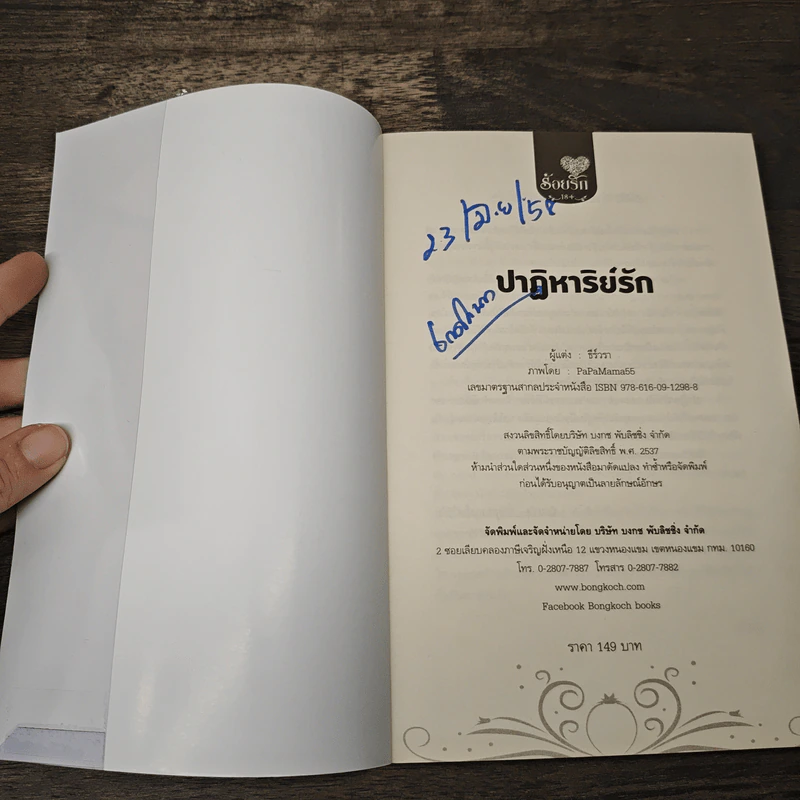 ร้อยรัก
18+
23/มิ.ย/58
ปาฏิหาริย์รัก
ผู้แต่ง : ธีร์วรา
ภาพโดย : PaPaMama55
เลขมาตรฐานสากลประจำหนังสือ ISBN 978-616-09-1298-8
สงวนลิขสิทธิ์โดยบริษัท บงกช พับลิชชิ่ง จำกัด
ตามพระราชบัญญัติลิขสิทธิ์ พ.ศ. 2537
ห้ามนำส่วนใดส่วนหนึ่งของหนังสือมาดัดแปลง ทำซ้ำหรือจัดพิมพ์
ก่อนได้รับอนุญาตเป็นลายลักษณ์อักษร
จัดพิมพ์และจัดจำหน่ายโดย บริษัท บงกช พับลิชชิ่ง จำกัด
2 ซอยเลียบคลองภาษีเจริญฝั่งเหนือ 12 แขวงหนองแขม เขตหนองแขม กทม. 10160
โทร. 0-2807-7887 โทรสาร 0-2807-7882
www.bongkoch.com
Facebook Bongkoch books
ราคา 149 บาท